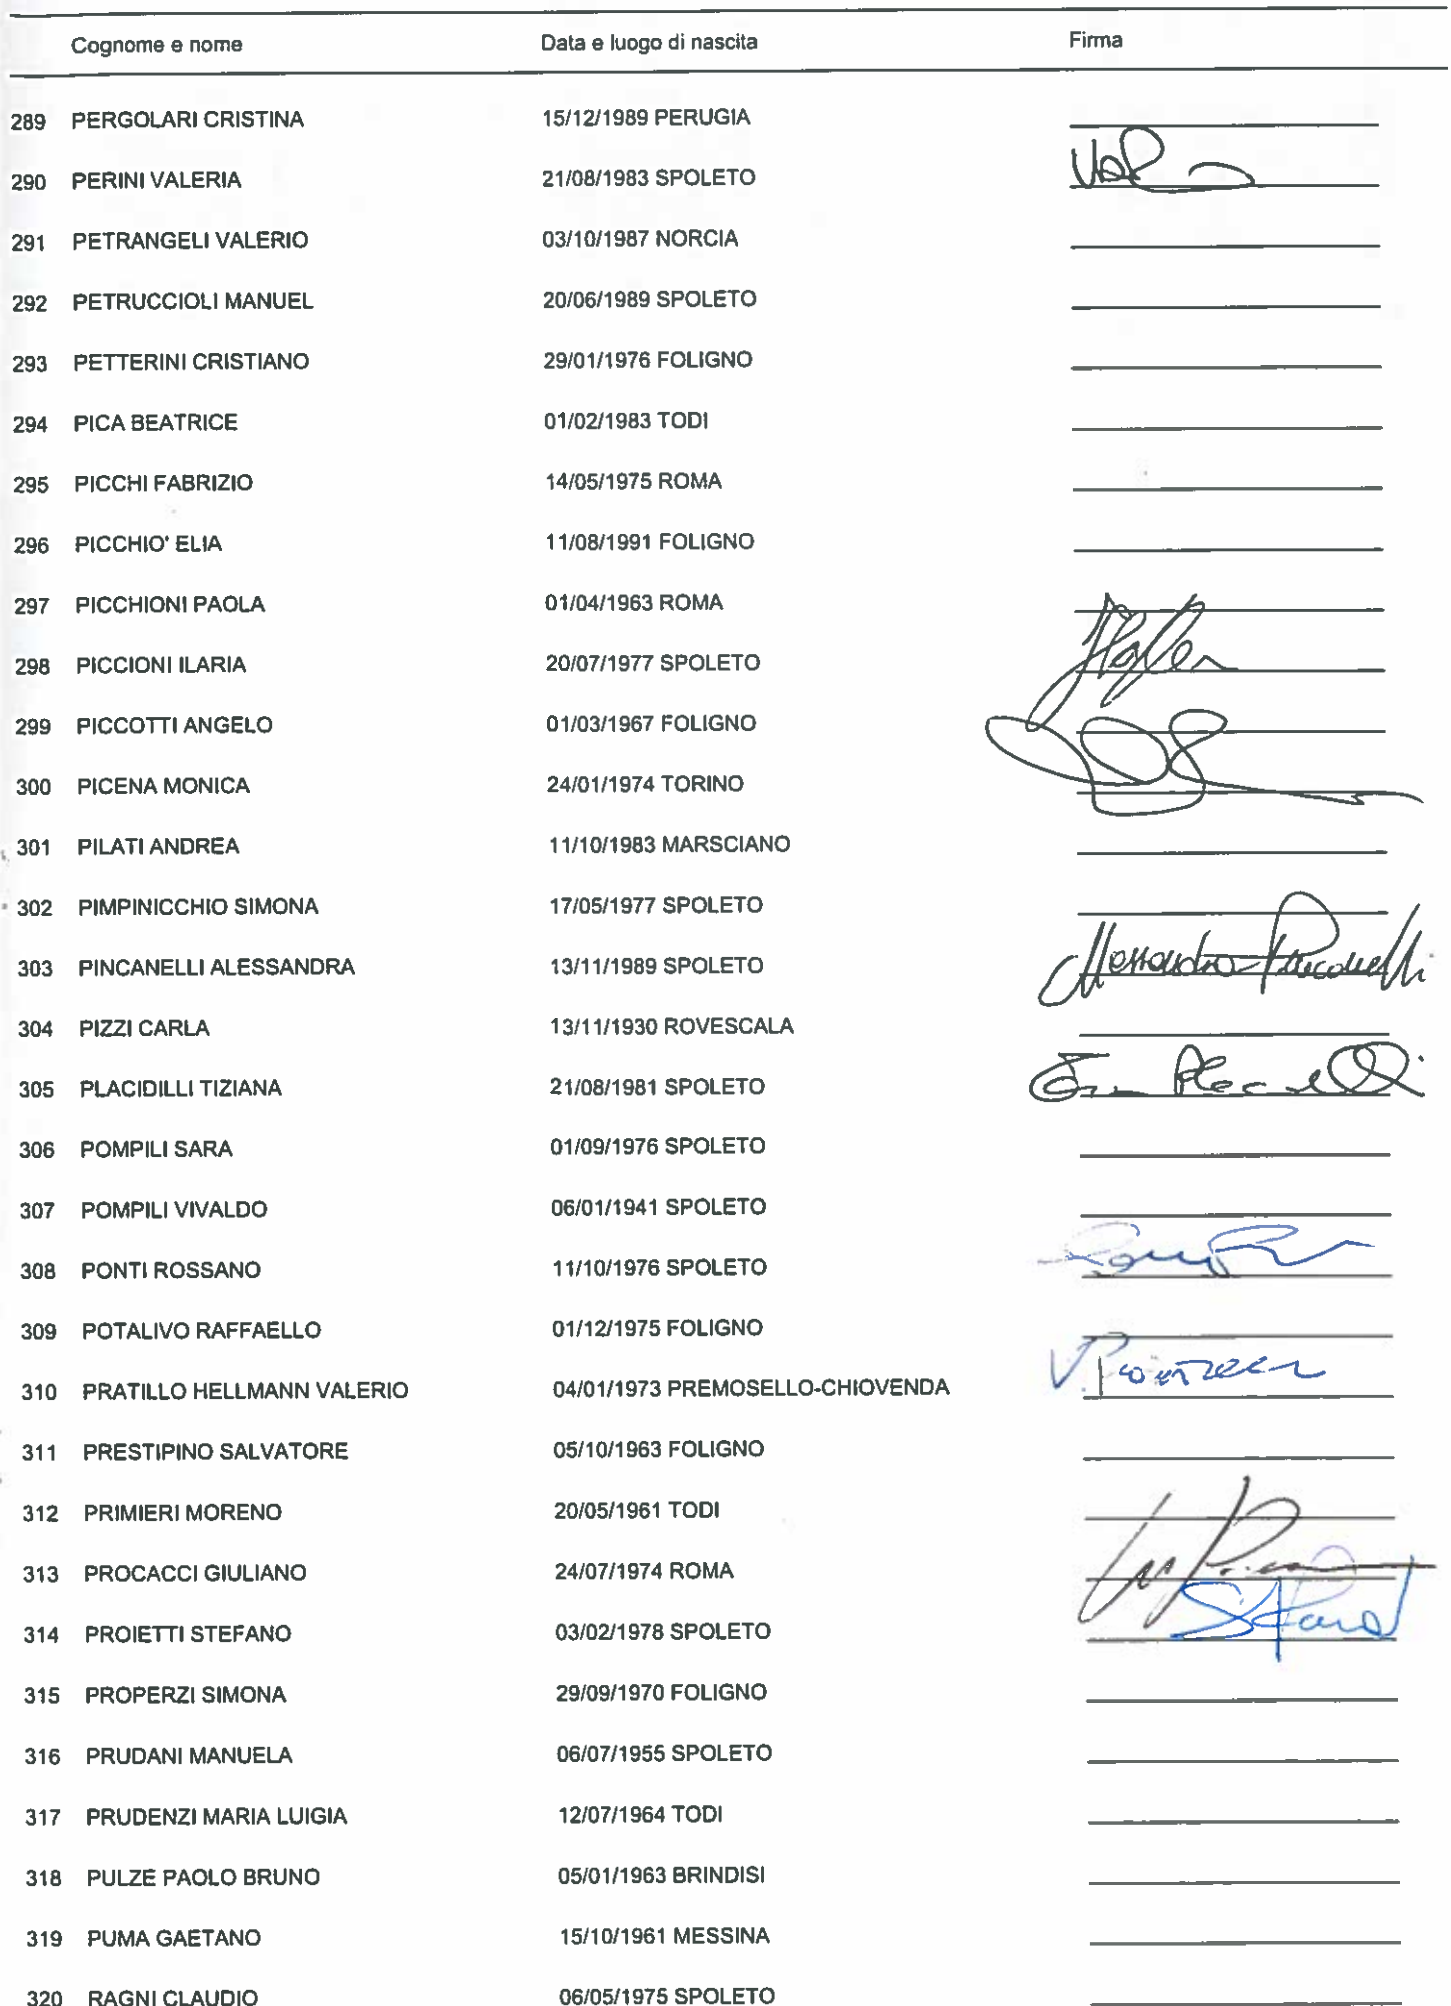 Cognome e nome Data e luogo di nascita Firma
289 PERGOLARI CRISTINA 15/12/1989 PERUGIA
290 PERINI VALERIA 21/08/1983 SPOLETO
291 PETRANGELI VALERIO 03/10/1987 NORCIA
292 PETRUCCIOLI MANUEL 20/06/1989 SPOLETO
293 PETTERINI CRISTIANO 29/01/1976 FOLIGNO
294 PICA BEATRICE 01/02/1983 TODI
295 PICCHI FABRIZIO 14/05/1975 ROMA
296 PICCHIO' ELIA 11/08/1991 FOLIGNO
297 PICCHIONI PAOLA 01/04/1963 ROMA
298 PICCIONI ILARIA 20/07/1977 SPOLETO
299 PICCOTTI ANGELO 01/03/1967 FOLIGNO
300 PICENA MONICA 24/01/1974 TORINO
301 PILATI ANDREA 11/10/1983 MARSCIANO
302 PIMPINICCHIO SIMONA 17/05/1977 SPOLETO
303 PINCANELLI ALESSANDRA 13/11/1989 SPOLETO Alessandra Pincanelli
304 PIZZI CARLA 13/11/1930 ROVESCALA
305 PLACIDILLI TIZIANA 21/08/1981 SPOLETO
306 POMPILI SARA 01/09/1976 SPOLETO
307 POMPILI VIVALDO 06/01/1941 SPOLETO
308 PONTI ROSSANO 11/10/1976 SPOLETO
309 POTALIVO RAFFAELLO 01/12/1975 FOLIGNO
310 PRATILLO HELLMANN VALERIO 04/01/1973 PREMOSELLO-CHIOVENDA
311 PRESTIPINO SALVATORE 05/10/1963 FOLIGNO
312 PRIMIERI MORENO 20/05/1961 TODI
313 PROCACCI GIULIANO 24/07/1974 ROMA
314 PROIETTI STEFANO 03/02/1978 SPOLETO
315 PROPERZI SIMONA 29/09/1970 FOLIGNO
316 PRUDANI MANUELA 06/07/1955 SPOLETO
317 PRUDENZI MARIA LUIGIA 12/07/1964 TODI
318 PULZE PAOLO BRUNO 05/01/1963 BRINDISI
319 PUMA GAETANO 15/10/1961 MESSINA
320 RAGNI CLAUDIO 06/05/1975 SPOLETO